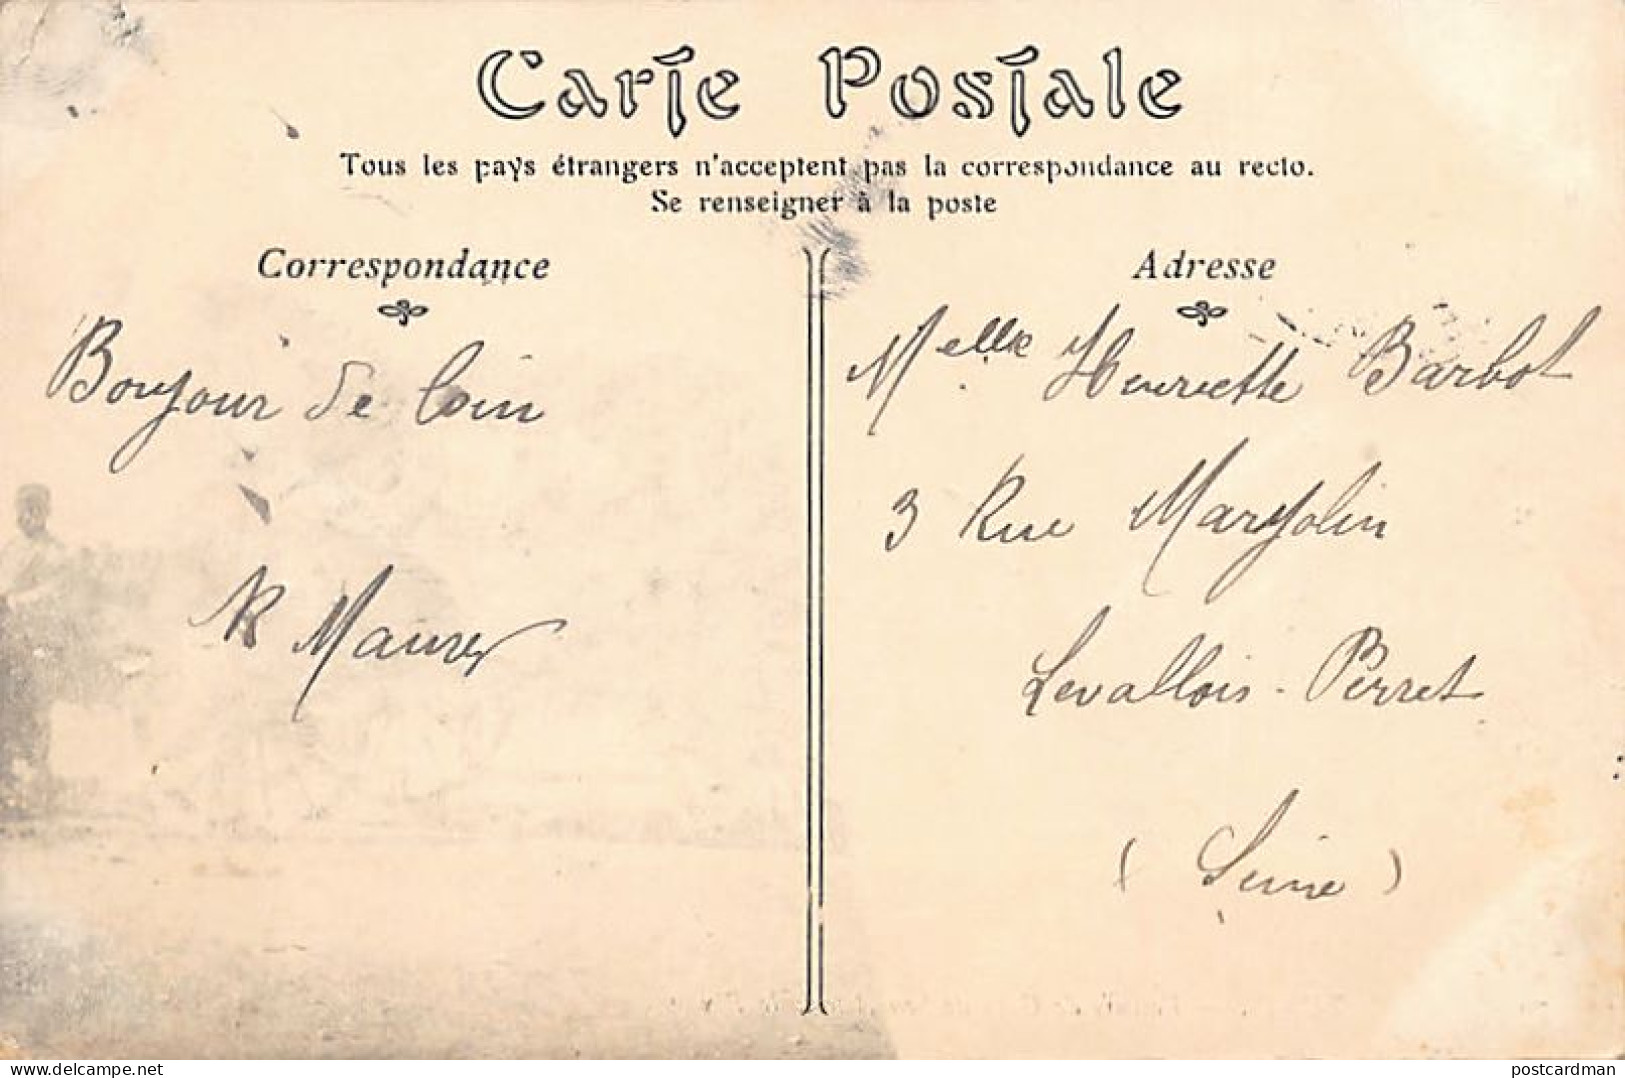 Carte Postale
Tous les pays étrangers n'acceptent pas la correspondance au recto.
Se renseigner à la poste
Correspondance
Bonjour de loin
Maurer
Adresse
Melle Henriette Barbot
3 Rue Marjolin
Levallois-Perret
(Seine)
delcampe.net
postcardman